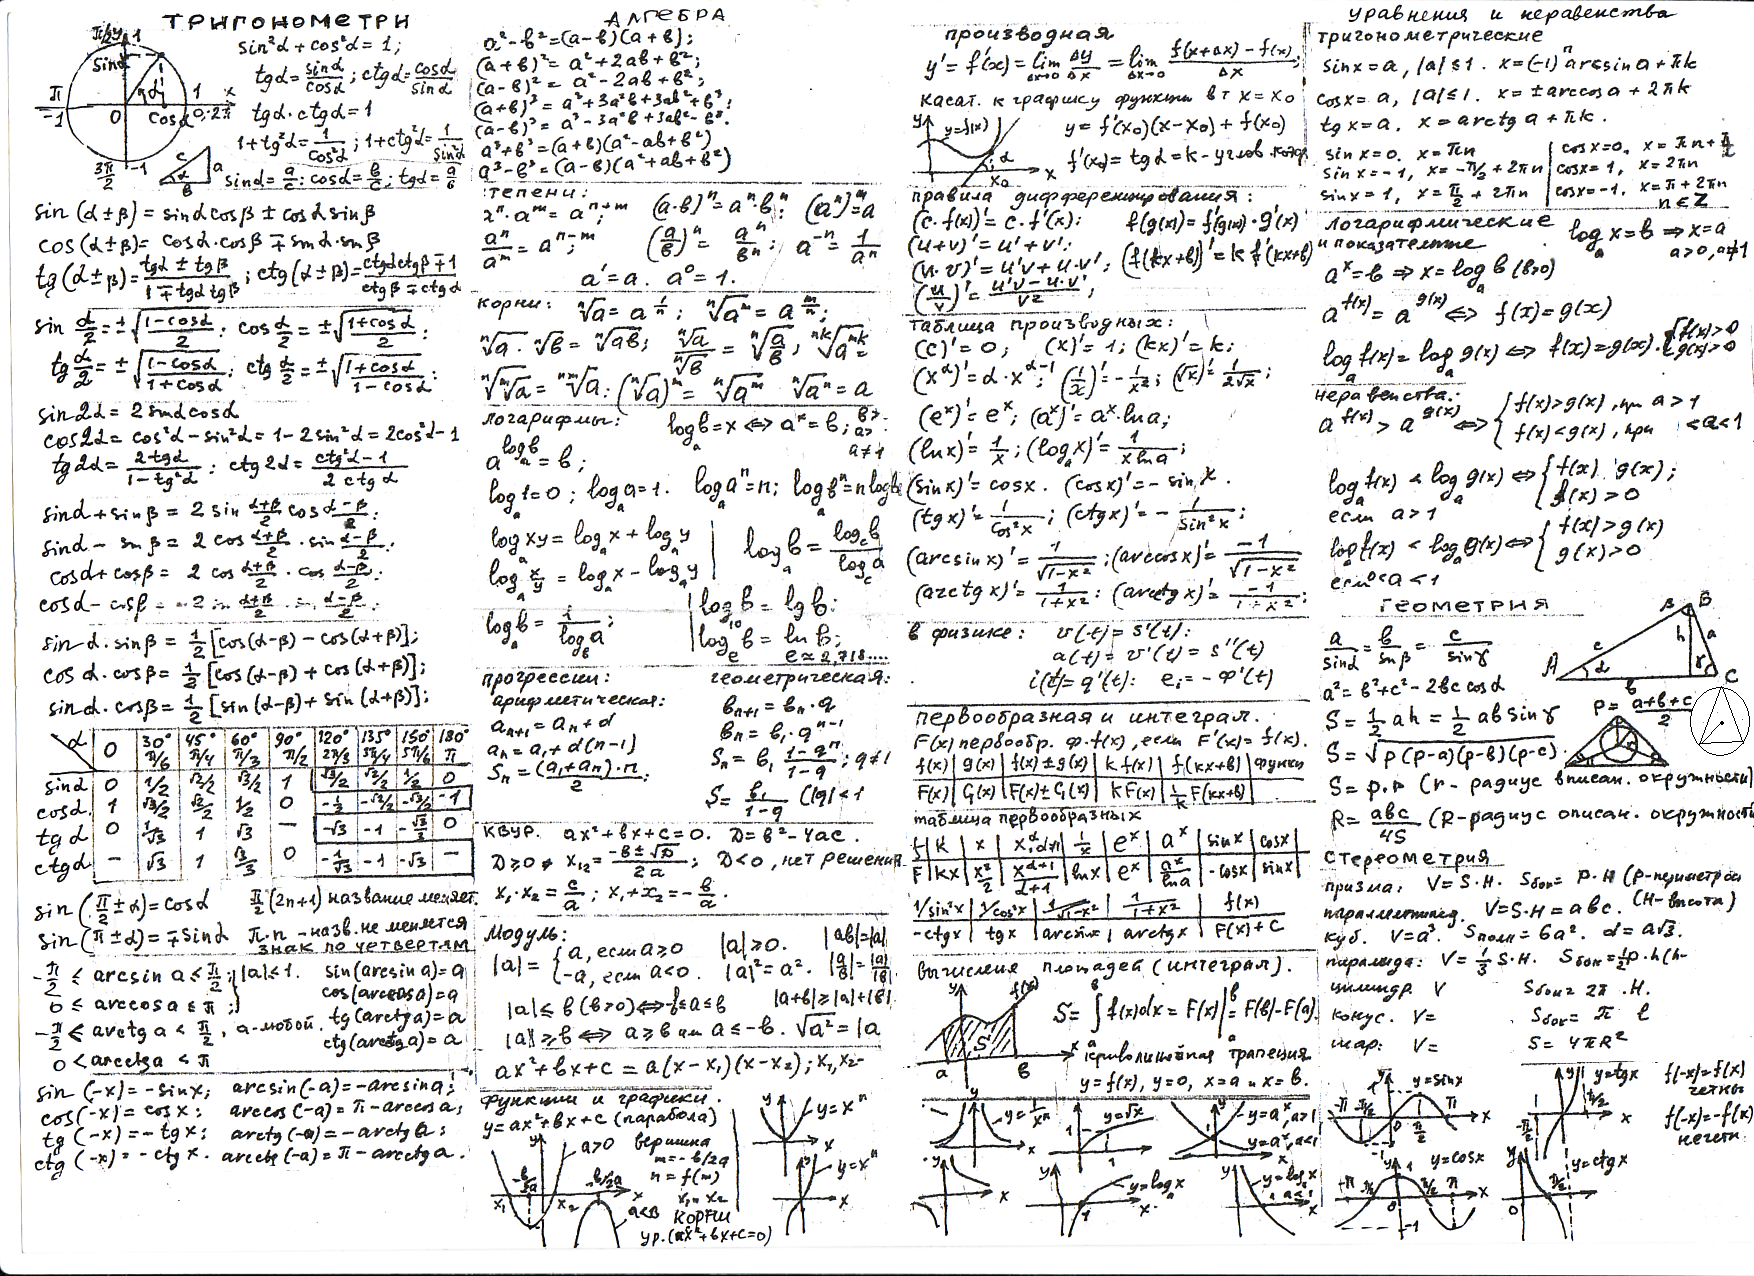 ТРИГОНОМЕТРИ
π/2 y 1
sinα
π
-1
0
cosα
1
x
0; 2π
3π/2 -1
sin²α + cos²α = 1;
tgα = sinα/cosα; ctgα = cosα/sinα
tgα · ctgα = 1
1+tg²α = 1/cos²α; 1+ctg²α = 1/sin²α
c a в
sinα = a/c; cosα = в/c; tgα = a/в
sin(α±β) = sinα cosβ ± cosα sinβ
cos(α±β) = cosα·cosβ ∓ sinα·sinβ
tg(α±β) = (tgα ± tgβ)/(1 ∓ tgα tgβ); ctg(α±β) = (ctgα ctgβ ∓ 1)/(ctgβ ∓ ctgα)
sin α/2 = ±√((1-cosα)/2); cos α/2 = ±√((1+cosα)/2);
tg α/2 = ±√((1-cosα)/(1+cosα)); ctg α/2 = ±√((1+cosα)/(1-cosα));
sin2α = 2sinαcosα
cos2α = cos²α - sin²α = 1 - 2sin²α = 2cos²α - 1
tg2α = 2tgα/(1-tg²α); ctg2α = (ctg²α - 1)/(2ctgα)
sinα + sinβ = 2 sin (α+β)/2 cos (α-β)/2;
sinα - sinβ = 2 cos (α+β)/2 · sin (α-β)/2;
cosα + cosβ = 2 cos (α+β)/2 · cos (α-β)/2;
cosα - cosβ = -2 sin (α+β)/2 · sin (α-β)/2;
sinα·sinβ = 1/2 [cos(α-β) - cos(α+β)];
cosα·cosβ = 1/2 [cos(α-β) + cos(α+β)];
sinα·cosβ = 1/2 [sin(α-β) + sin(α+β)];
α 0 30° π/6 45° π/4 60° π/3 90° π/2 120° 2π/3 135° 3π/4 150° 5π/6 180° π
sinα 0 1/2 √2/2 √3/2 1 √3/2 √2/2 1/2 0
cosα 1 √3/2 √2/2 1/2 0 -1/2 -√2/2 -√3/2 -1
tgα 0 1/√3 1 √3 — -√3 -1 -√3/3 0
ctgα — √3 1 √3/3 0 -1/√3 -1 -√3 —
sin(π/2 ± α) = cosα π/2(2n+1) название меняет.
sin(π±α) = ∓sinα π·n - назв. не меняется
знак по четвертям
-π/2 ≤ arcsin a ≤ π/2; |a|≤1. sin(arcsin a) = a
0 ≤ arccos a ≤ π; cos(arccos a) = a
-π/2 < arctg a < π/2, a-любой. tg(arctg a) = a
0 < arcctg a < π ctg(arcctg a) = a
sin(-x) = -sinx; arcsin(-a) = -arcsin a;
cos(-x) = cosx; arccos(-a) = π - arccos a;
tg(-x) = -tgx; arctg(-a) = -arctg a;
ctg(-x) = -ctgx. arcctg(-a) = π - arcctg a.
АЛГЕБРА
a² - в² = (a-в)(a+в);
(a+в)² = a² + 2aв + в²;
(a-в)² = a² - 2aв + в²;
(a+в)³ = a³ + 3a²в + 3aв² + в³;
(a-в)³ = a³ - 3a²в + 3aв² - в³.
a³+в³ = (a+в)(a² - aв + в²)
a³-в³ = (a-в)(a² + aв + в²)
степени:
aⁿ·aᵐ = aⁿ⁺ᵐ (a·в)ⁿ = aⁿ·вⁿ; (aⁿ)ᵐ = a
aⁿ/aᵐ = aⁿ⁻ᵐ (a/в)ⁿ = aⁿ/вⁿ; a⁻ⁿ = 1/aⁿ
a¹ = a. a⁰ = 1.
корни: ⁿ√a = a^(1/n); ⁿ√aᵐ = a^(m/n);
ⁿ√a · ⁿ√в = ⁿ√aв; ⁿ√a/ⁿ√в = ⁿ√(a/в); ⁿᵏ√aᵐᵏ =
ⁿ√ᵐ√a = ⁿᵐ√a; (ⁿ√a)ᵐ = ⁿ√aᵐ ⁿ√aⁿ = a
логарифмы: logₐв = x ⇔ aˣ = в; в> a> a≠1
a^(logₐв) = в;
logₐ1 = 0; logₐa = 1. logₐaⁿ = n; logₐвⁿ = n logₐв
logₐxy = logₐx + logₐy
logₐ x/y = logₐx - logₐy
logₐв = log_c в / log_c a
logₐв = 1/log_в a;
log₁₀в = lg в;
logₑв = ln в;
e ≈ 2,718....
прогрессии:
арифметическая: геометрическая:
aₙ₊₁ = aₙ + d вₙ₊₁ = вₙ·q
aₙ = a₁ + d(n-1) вₙ = в₁·qⁿ⁻¹
Sₙ = (a₁+aₙ)·n/2; Sₙ = в₁ (1-qⁿ)/(1-q); q≠1
S = в₁/(1-q) (|q|<1
КВ.УР. ax²+вx+c=0. D = в²-4ac.
D≥0 x₁₂ = (-в±√D)/2a; D<0, нет решения
x₁·x₂ = c/a; x₁+x₂ = -в/a.
Модуль:
|a| = { a, если a≥0
-a, если a<0.
|a|≥0. |aв| = |a|
|a|² = a². |a/в| = |a|/|в|
|a|≤в (в>0) ⇔ -в≤a≤в |a+в|≥|a|+|в|
|a|≥в ⇔ a≥в или a≤-в. √a² = |a
ax²+вx+c = a(x-x₁)(x-x₂); x₁,x₂-
функции и графики.
y = ax²+вx+c (парабола)
a>0 вершина
m = -в/2a
n = f(m)
x₁ x₂ -в/2a -в/2a
x₁ и x₂
корни
a<0
ур. (ax²+вx+c=0)
y = xⁿ
y = xⁿ
производная
y' = f'(x) = lim Δx→0 Δy/Δx = lim Δx→0 (f(x+Δx) - f(x))/Δx;
касат. к графику функции в т x = x₀
y = f(x)
y = f'(x₀)(x-x₀) + f(x₀)
f'(x₀) = tgα = k - углов. коэф
правила дифференцирования:
(c·f(x))' = c·f'(x); f(g(x)) = f'(g(x))·g'(x)
(u+v)' = u' + v';
(u·v)' = u'v + u·v'; (f(kx+в))' = k f'(kx+в)
(u/v)' = (u'v - u·v')/v²;
таблица производных:
(c)' = 0; (x)' = 1; (kx)' = k;
(x^α)' = α·x^(α-1); (1/x)' = -1/x²; (√x)' = 1/2√x;
(eˣ)' = eˣ; (aˣ)' = aˣ·ln a;
(ln x)' = 1/x; (logₐx)' = 1/(x ln a);
(sinx)' = cosx. (cosx)' = -sinx.
(tgx)' = 1/cos²x; (ctgx)' = -1/sin²x;
(arcsinx)' = 1/√(1-x²); (arccosx)' = -1/√(1-x²)
(arctgx)' = 1/(1+x²); (arcctgx)' = -1/(1+x²);
в физике: v(t) = s'(t);
a(t) = v'(t) = s''(t)
i(t) = q'(t); eᵢ = -Φ'(t)
первообразная и интеграл.
F(x) первообр. ф. f(x), если F'(x) = f(x).
f(x) | g(x) | f(x)±g(x) | k f(x) | f(kx+в) | функци
F(x) | G(x) | F(x)±G(x) | kF(x) | 1/k F(kx+в) |
таблица первообразных
f | k | x | x^α, α≠-1 | 1/x | eˣ | aˣ | sinx | cosx |
F | kx | x²/2 | x^(α+1)/(α+1) | lnx | eˣ | aˣ/ln a | -cosx | sinx |
1/sin²x | 1/cos²x | 1/√(1-x²) | 1/(1+x²) | f(x)
-ctgx | tgx | arcsinx | arctgx | F(x)+C
Вычисления площадей (интеграл).
f(x)
S
a в
S = ∫ f(x)dx = F(x)| = F(в) - F(a).
криволинейная трапеция
y = f(x), y = 0, x = a и x = в.
y = 1/xⁿ y = √x y = aˣ, a>1
y = aˣ, a<1
y = logₐx y = logₐx
a<1
уравнения и неравенства
тригонометрические
sinx = a, |a|≤1. x = (-1)ⁿ arcsin a + πk
cosx = a, |a|≤1. x = ±arccos a + 2πk
tgx = a. x = arctg a + πk.
sinx = 0. x = πn cosx = 0, x = πn + π/2
sinx = -1, x = -π/2 + 2πn cosx = 1, x = 2πn
sinx = 1, x = π/2 + 2πn cosx = -1. x = π + 2πn
n ∈ Z
логарифмические
и показательные
logₐx = в ⇒ x = a
a>0, a≠1
aˣ = в ⇒ x = logₐв (в>0)
a^f(x) = a^g(x) ⇔ f(x) = g(x)
logₐf(x) = logₐg(x) ⇔ f(x) = g(x). { f(x)>0
g(x)>0
Неравенства:
a^f(x) > a^g(x) ⇔ { f(x)>g(x), при a>1
f(x)<g(x), при <a<1
logₐf(x) < logₐg(x) ⇔ { f(x) g(x);
f(x)>0
если a>1
logₐf(x) < logₐg(x) ⇔ { f(x)>g(x)
g(x)>0
если 0<a<1
ГЕОМЕТРИЯ
a/sinα = в/sinβ = c/sinγ
a² = в²+c² - 2вc cosα
A B C c a h в α β γ
S = 1/2 ah = 1/2 aв sinγ
P = (a+в+c)/2
S = √(p(p-a)(p-в)(p-c)).
S = p·r (r - радиус вписан. окружности)
R = aвc/4S (R - радиус описан. окружности
СТЕРЕОМЕТРИЯ
призма: V = S·H. Sбок = P·H (P-периметр осн
параллелепипед. V = S·H = aвc. (H-высота)
куб. V = a³. Sполн = 6a². d = a√3.
пирамида: V = 1/3 S·H. Sбок = 1/2 p·h (h-
цилиндр. V Sбок = 2π .H.
конус. V= Sбок = π l
шар: V= S = 4πR²
y = sinx y = tgx f(-x) = f(x)
четны
f(-x) = -f(x)
нечетн.
y = cosx y = ctgx